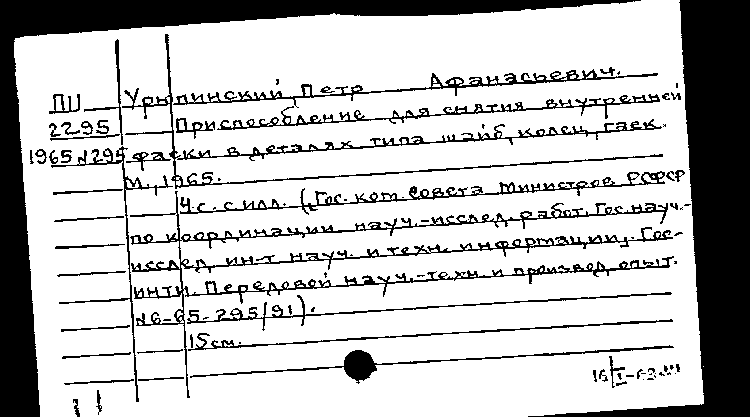 ПЦ Урюпинский, Петр Афанасьевич.
2295 Приспособление для снятия внутренней
1965 №295 фаски в деталях типа шайб, колец, гаек.
М., 1965.
4 с. с илл. (Гос. ком. Совета Министров РСФСР
по координации науч.-исслед. работ. Гос. науч.-
исслед. ин-т науч. и техн. информации. Гос-
инти. Передовой науч.-техн. и производ. опыт.
№6-65-295/91).
15 см.